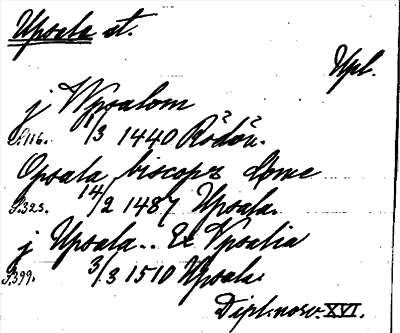 Upsala st.
Upl.
j Wpsalom
S.116. 1/3 1440 Rödön.
Opsala biscops dome
S.323. 14/2 1487 Upsala.
j Upsala.. Ex Vpsalia
S.399. 3/3 1510 Upsala.
Dipl. norv. XVI.